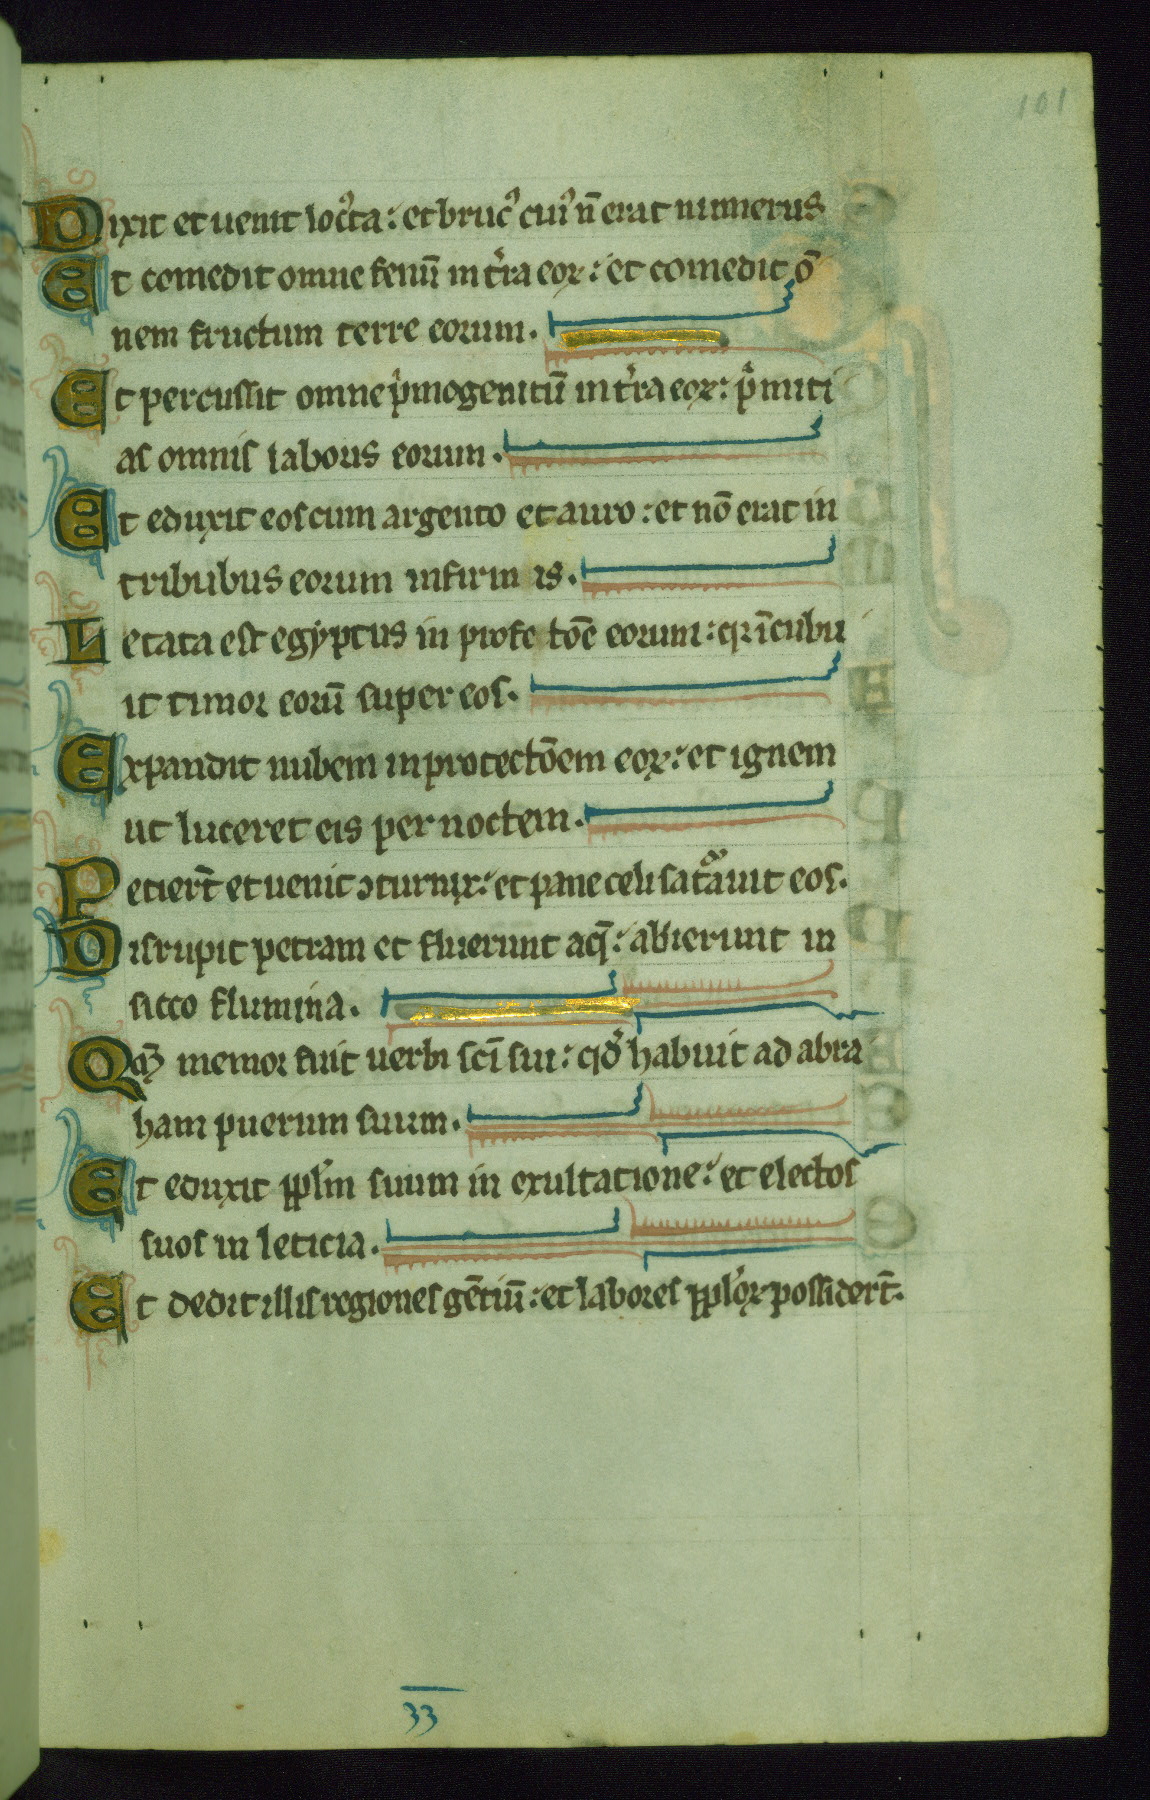 101
Dixit et uenit loc᷒ta: et bruc᷒ cui᷒ n̄ erat numerus
Et comedit omne fenū in t̾ra eoꝝ: et comedit ō
nem fructum terre eorum.
Et percussit omne p̾mogenitū in t̾ra eoꝝ: p̾miti
as omnis laboris eorum.
Et eduxit eos cum argento et auro: et nō erat in
tribubus eorum infirm is.
Letata est egyptus in profe tōe eorum: qꝛ īcubu
it timor eorū super eos.
Expandit nubem in protectōem eoꝝ: et ignem
ut luceret eis per noctem.
Petiert̄ et uenit ↄturnix: et pane celi satᷓauit eos.
Disrupit petram et fluxerunt aq̄: abierunt in
sicco flumina.
Qm̄ memor fuit uerbi sci̅ sui: qd̾ habuit ad abra
ham puerum suum.
Et eduxit ppl̾m suum in exultatione: et electos
suos in leticia.
Et dedit illis regiones gētiū: et labores ppl̾oꝝ possidert̄.
33